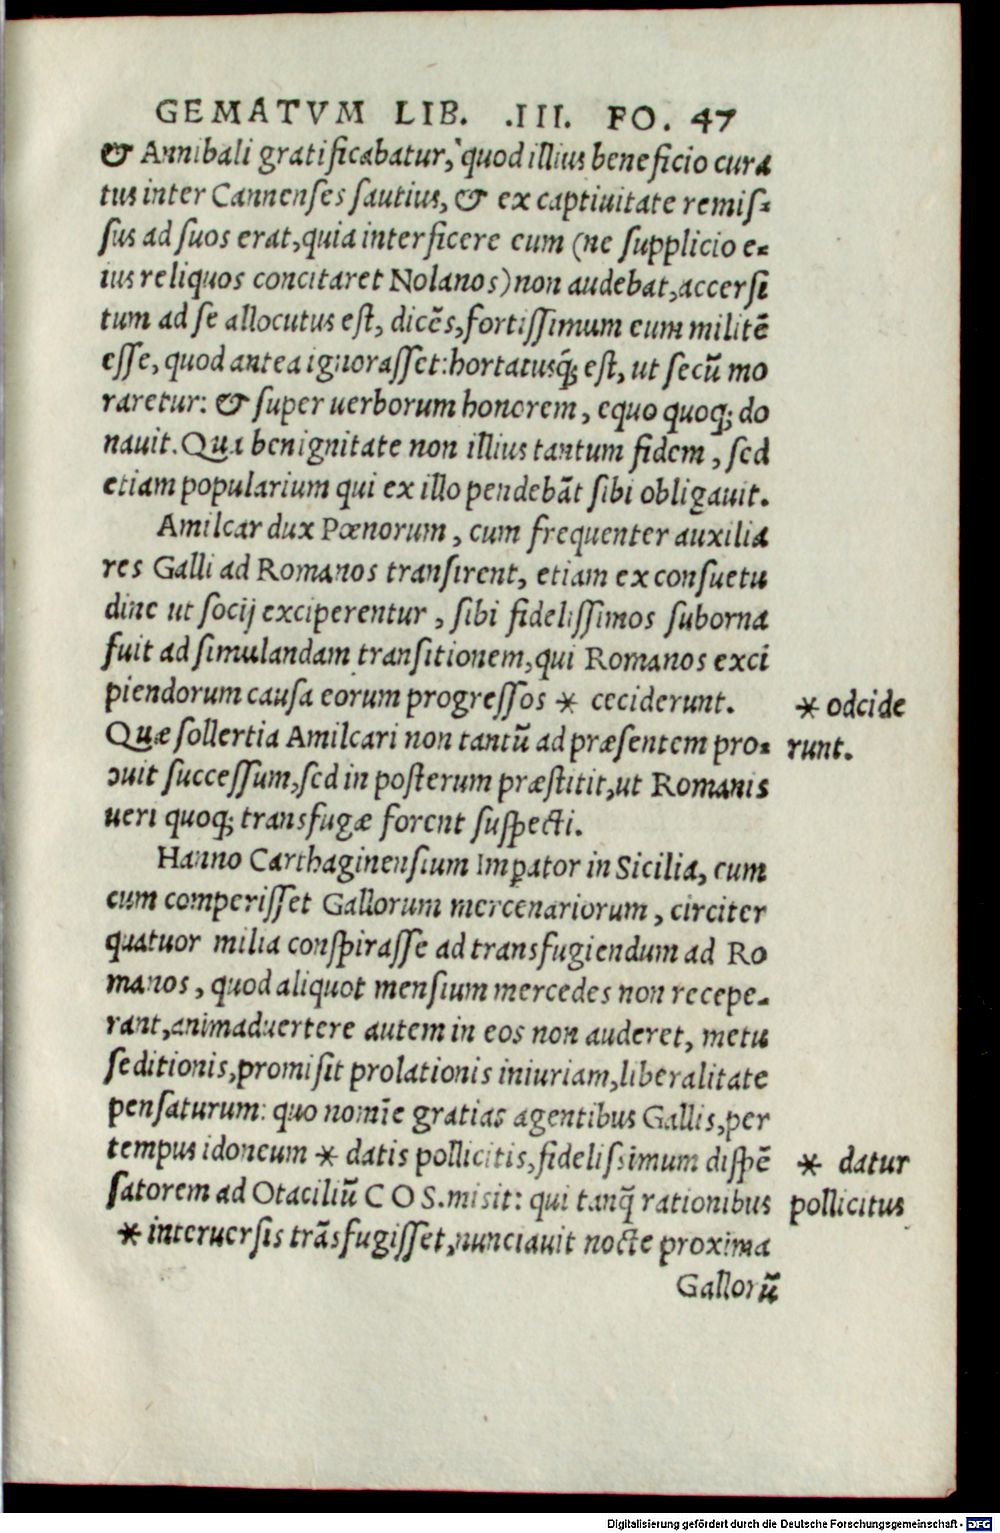 GEMATVM LIB. .III. FO. 47
& Annibali gratificabatur, quod illius beneficio cura
tus inter Cannenses sautius, & ex captiuitate remis-
sus ad suos erat, quia interficere eum (ne supplicio e-
ius reliquos concitaret Nolanos) non audebat, accersi
tum ad se allocutus est, dicēs, fortissimum eum militē
esse, quod antea ignorasset: hortatusq́; est, ut secū mo
raretur: & super uerborum honorem, equo quoq; do
nauit. Qua benignitate non illius tantum fidem, sed
etiam popularium qui ex illo pendebāt sibi obligauit.
Amilcar dux Pœnorum, cum frequenter auxilia
res Galli ad Romanos transirent, etiam ex consuetu
dine ut socij exciperentur, sibi fidelissimos suborna
fuit ad simulandam transitionem, qui Romanos exci
piendorum causa eorum progressos * ceciderunt.
* odcide
Quæ sollertia Amilcari non tantū ad præsentem pro-
runt.
ɔuit successum, sed in posterum præstitit, ut Romanis
ueri quoq; transfugæ forent suspecti.
Hanno Carthaginensium Imꝑator in Sicilia, cum
cum comperisset Gallorum mercenariorum, circiter
quatuor milia conspirasse ad transfugiendum ad Ro
manos, quod aliquot mensium mercedes non recepe-
rant, animaduertere autem in eos non auderet, metu
seditionis, promisit prolationis iniuriam, liberalitate
pensaturum: quo nomīe gratias agentibus Gallis, per
tempus idoneum * datis pollicitis, fidelissimum dispē
* datur
satorem ad Otaciliū COS. misit: qui tanq̄ rationibus
pollicitus
* interuersis trāsfugisset, nunciauit nocte proxima
Gallorū
Digitalisierung gefördert durch die Deutsche Forschungsgemeinschaft - DFG